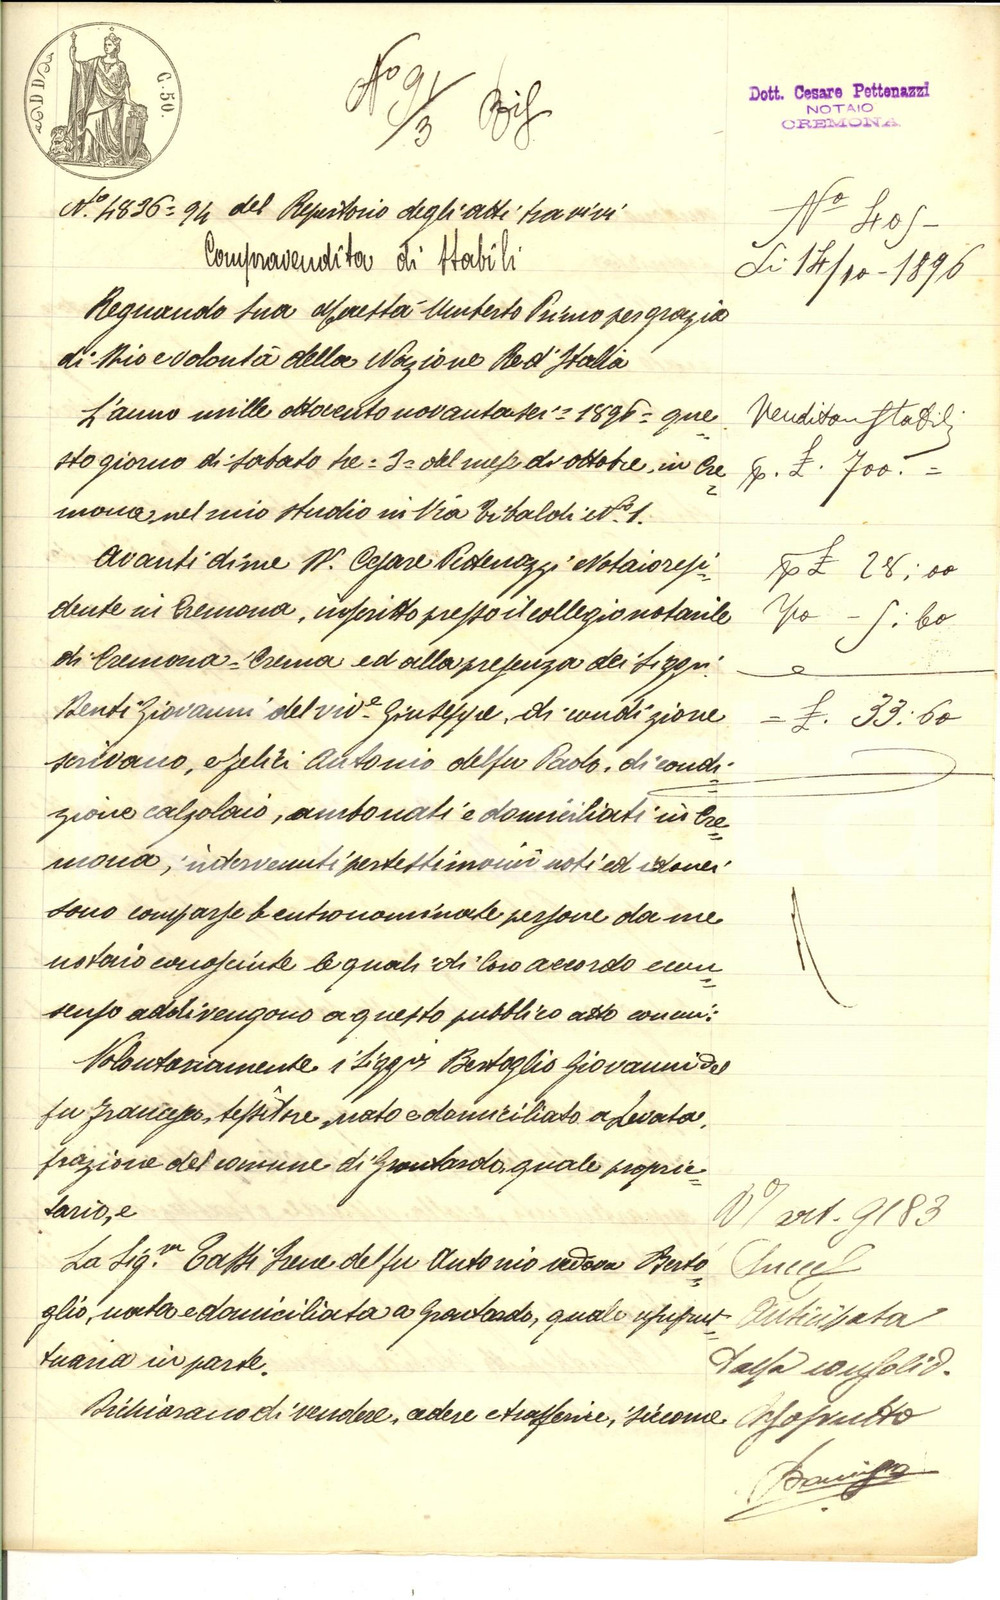 C. 50.
N.º 9/3 Bis
Dott. Cesare Pettenazzi
NOTAIO
CREMONA
N.º 4836=94 del Repertorio degli atti tra vivi
Compravendita di Stabili
Regnando Sua Maestà Umberto Primo per grazia
di Dio e volontà della Nazione Re d'Italia
L'anno mille ottocento novantasei = 1896 = que=
sto giorno di Sabato tre = 3 = del mese di ottobre, in Cre=
mona, nel mio studio in Via Tibaldi N.º 1.
Avanti di me D.r Cesare Pettenazzi Notaio resi=
dente in Cremona, inscritto presso il collegio notarile
di Cremona=Crema ed alla presenza dei Siggri
Denti Giovanni del viv.e Giuseppe, di condizione
scrivano, e Felici Antonio del fu Paolo, di condi=
zione calzolaio, ambo nati e domiciliati in Cre=
mona, intervenuti per testimonii noti ed idonei
sono comparse le entronominate persone da me
notaio conosciute le quali di loro accordo e con=
senso addivengono a questo pubblico atto con cui:
Volontariamente i Siggri Bertoglio Giovanni del
fu Francesco, tessitore, nato e domiciliato a Levata,
frazione del comune di Grontardo, quale proprie=
tario, e
La Sig.ra Tassi Irene del fu Antonio vedova Berto=
glio, nata e domiciliata a Grontardo, quale usufrut=
tuaria in parte.
Dichiarano di vendere, cedere e trasferire, siccome
N.º 405
Li 14/10 - 1896
Vendita Stabili
p. £. 700. =
p £ 28:00
- 5:60
= £. 33:60
art. 9183
Anticipata
Tassa consolid.
Usofrutto